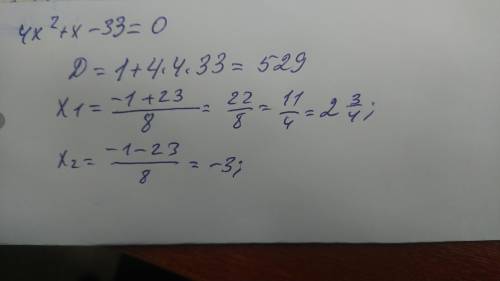 4x²+x-33=0
D=1+4·4·33=529
x1=(-1+23)/8=22/8=11/4=2 3/4;
x2=(-1-23)/8=-3;